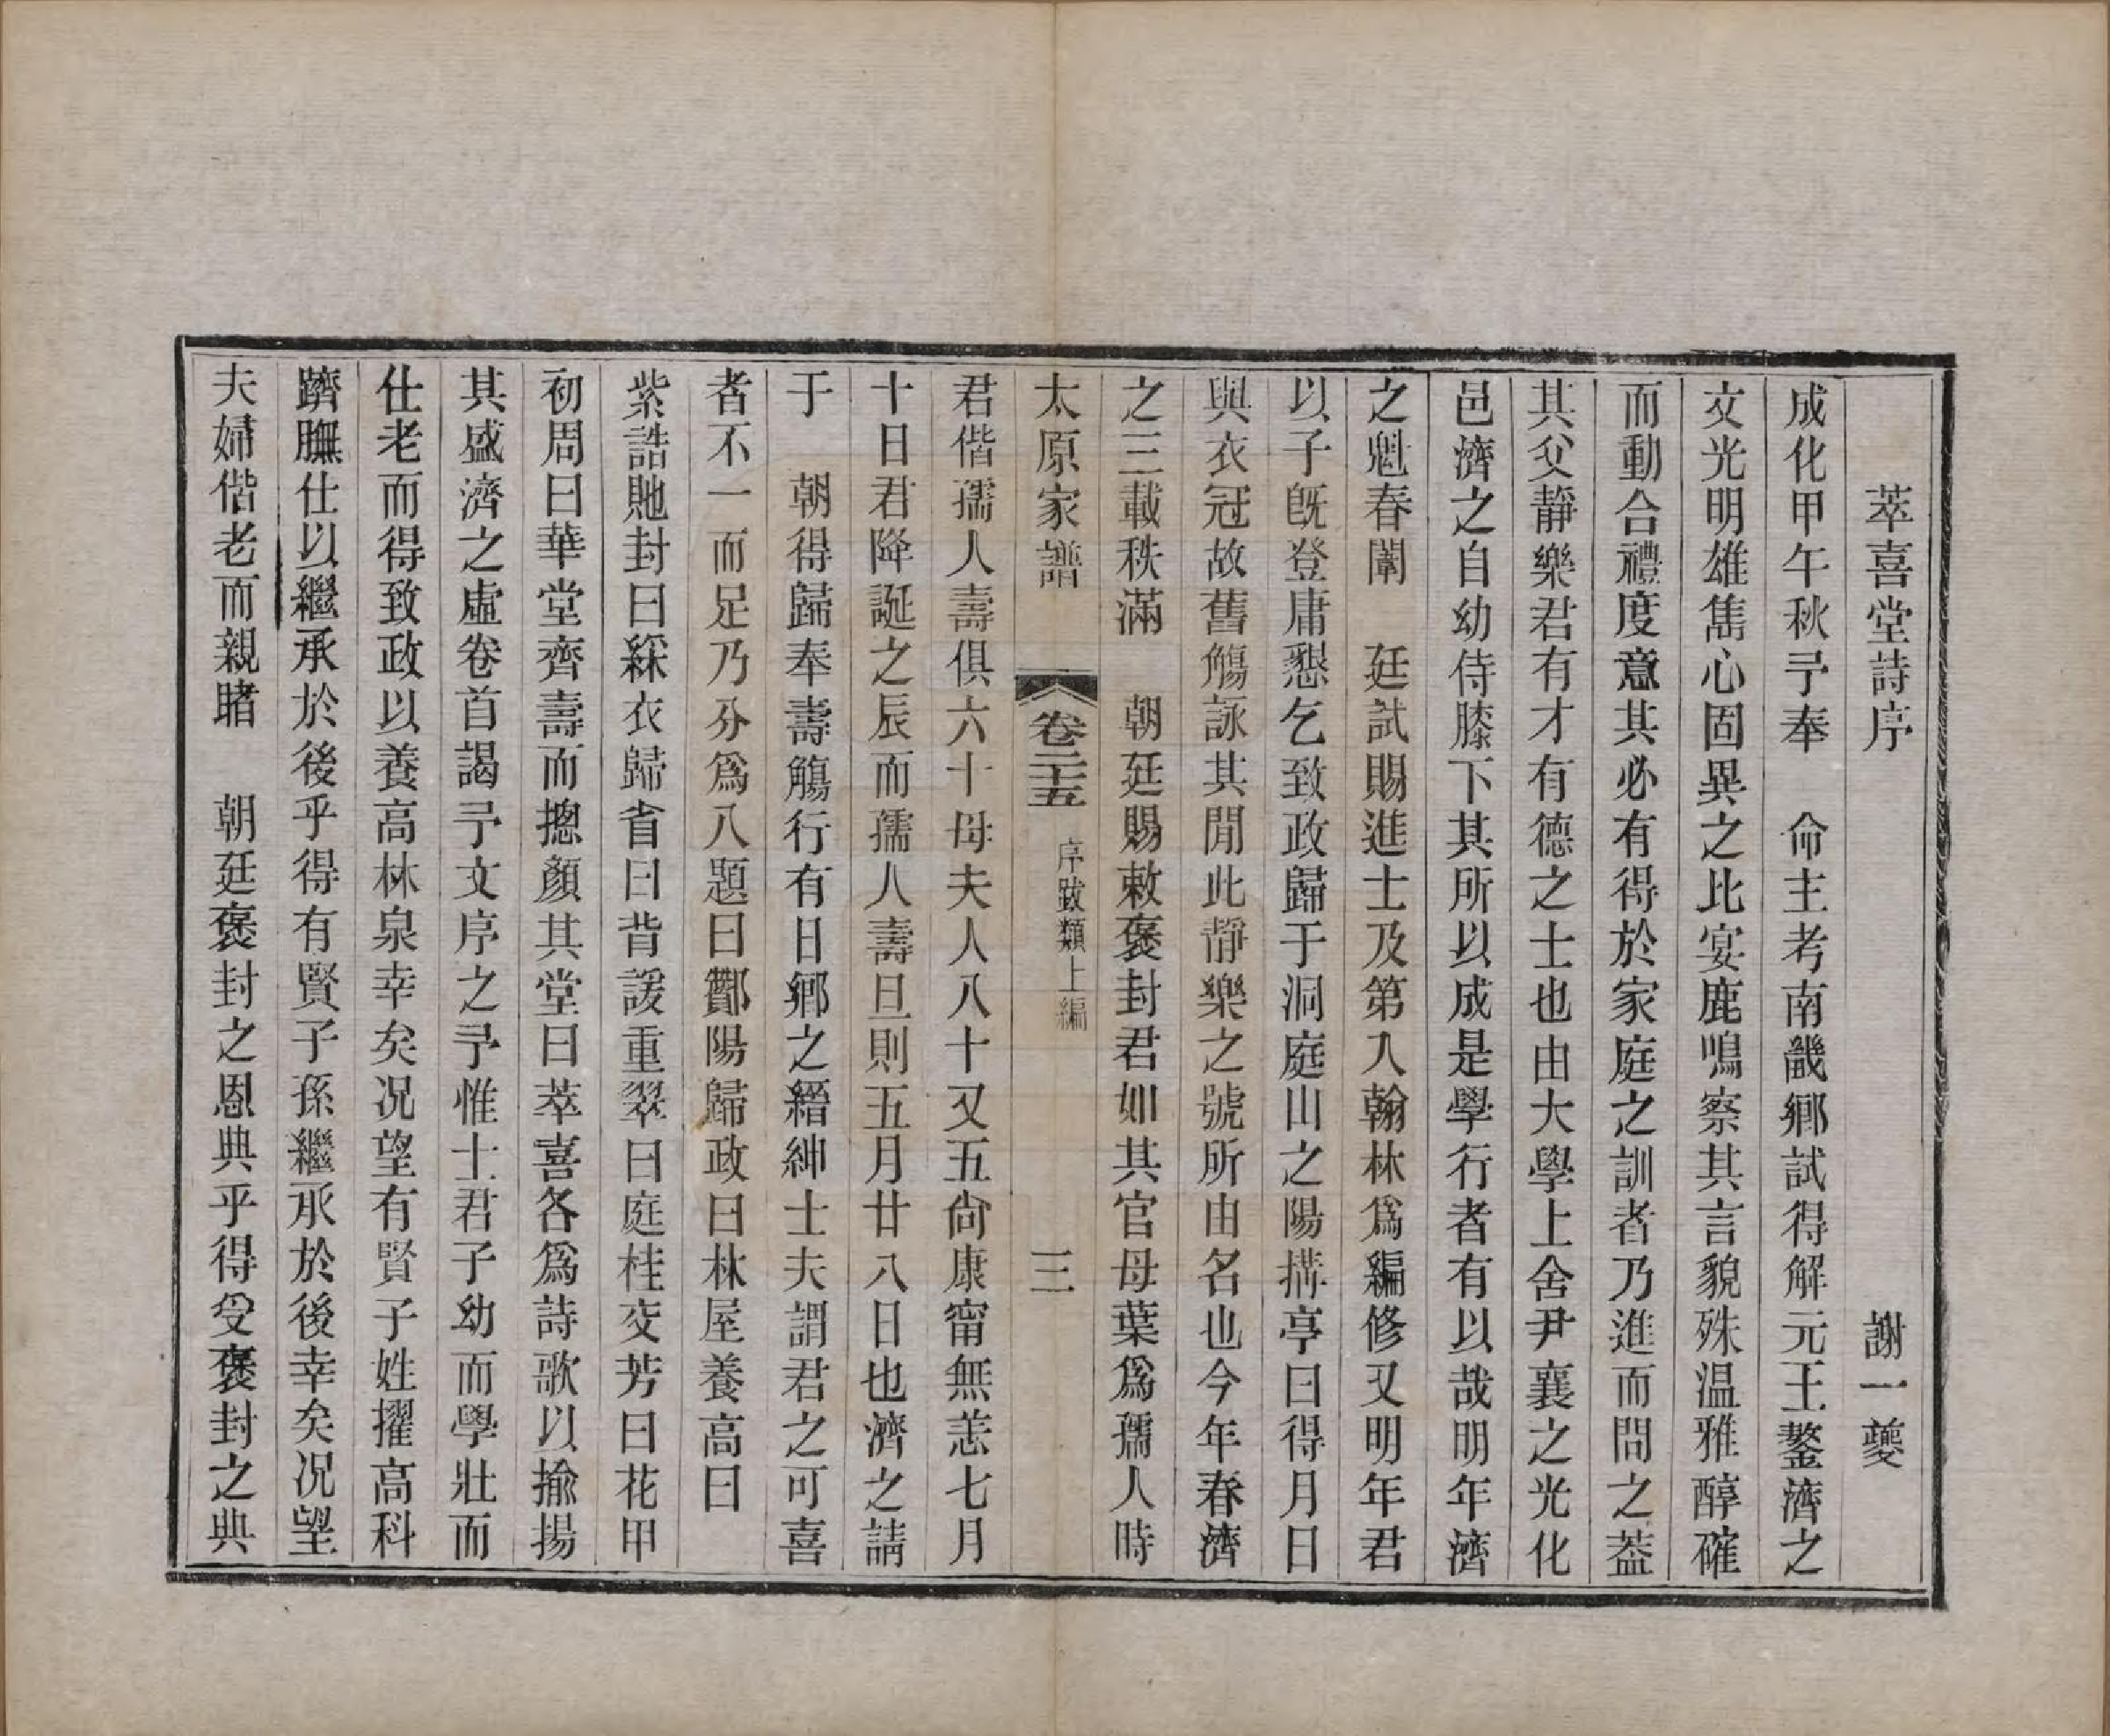 萃喜堂詩序　謝一夔
成化甲午秋予奉　命主考南畿鄉試得解元王鏊濟之
文光明雄雋心固異之比宴鹿鳴察其言貌殊温雅醇確
而動合禮度意其必有得於家庭之訓者乃進而問之葢
其父靜樂君有才有德之士也由大學上舍尹襄之光化
邑濟之自幼侍膝下其所以成是學行者有以哉明年濟
之魁春闈　廷試賜進士及第入翰林爲編修又明年君
以子既登庸懇乞致政歸于洞庭山之陽搆亭曰得月日
與衣冠故舊觴詠其閒此靜樂之號所由名也今年春濟
之三載秩滿　朝廷賜敕褒封君如其官母葉爲孺人時
太原家譜　卷二十五　序跋類上編　三
君偕孺人壽俱六十母夫人八十又五尙康甯無恙七月
十日君降誕之辰而孺人壽旦則五月廿八日也濟之請
于　朝得歸奉壽觴行有日鄉之縉紳士夫謂君之可喜
者不一而足乃分爲八題曰酇陽歸政曰林屋養高曰
紫誥貤封曰綵衣歸省曰背諼重翠曰庭桂交芳曰花甲
初周曰華堂齊壽而摠顏其堂曰萃喜各爲詩歌以揄揚
其盛濟之虛卷首謁予文序之予惟士君子幼而學壯而
仕老而得致政以養高林泉幸矣况望有賢子姓擢高科
躋膴仕以繼承於後乎得有賢子孫繼承於後幸矣况望
夫婦偕老而親睹　朝廷褒封之恩典乎得受褒封之典